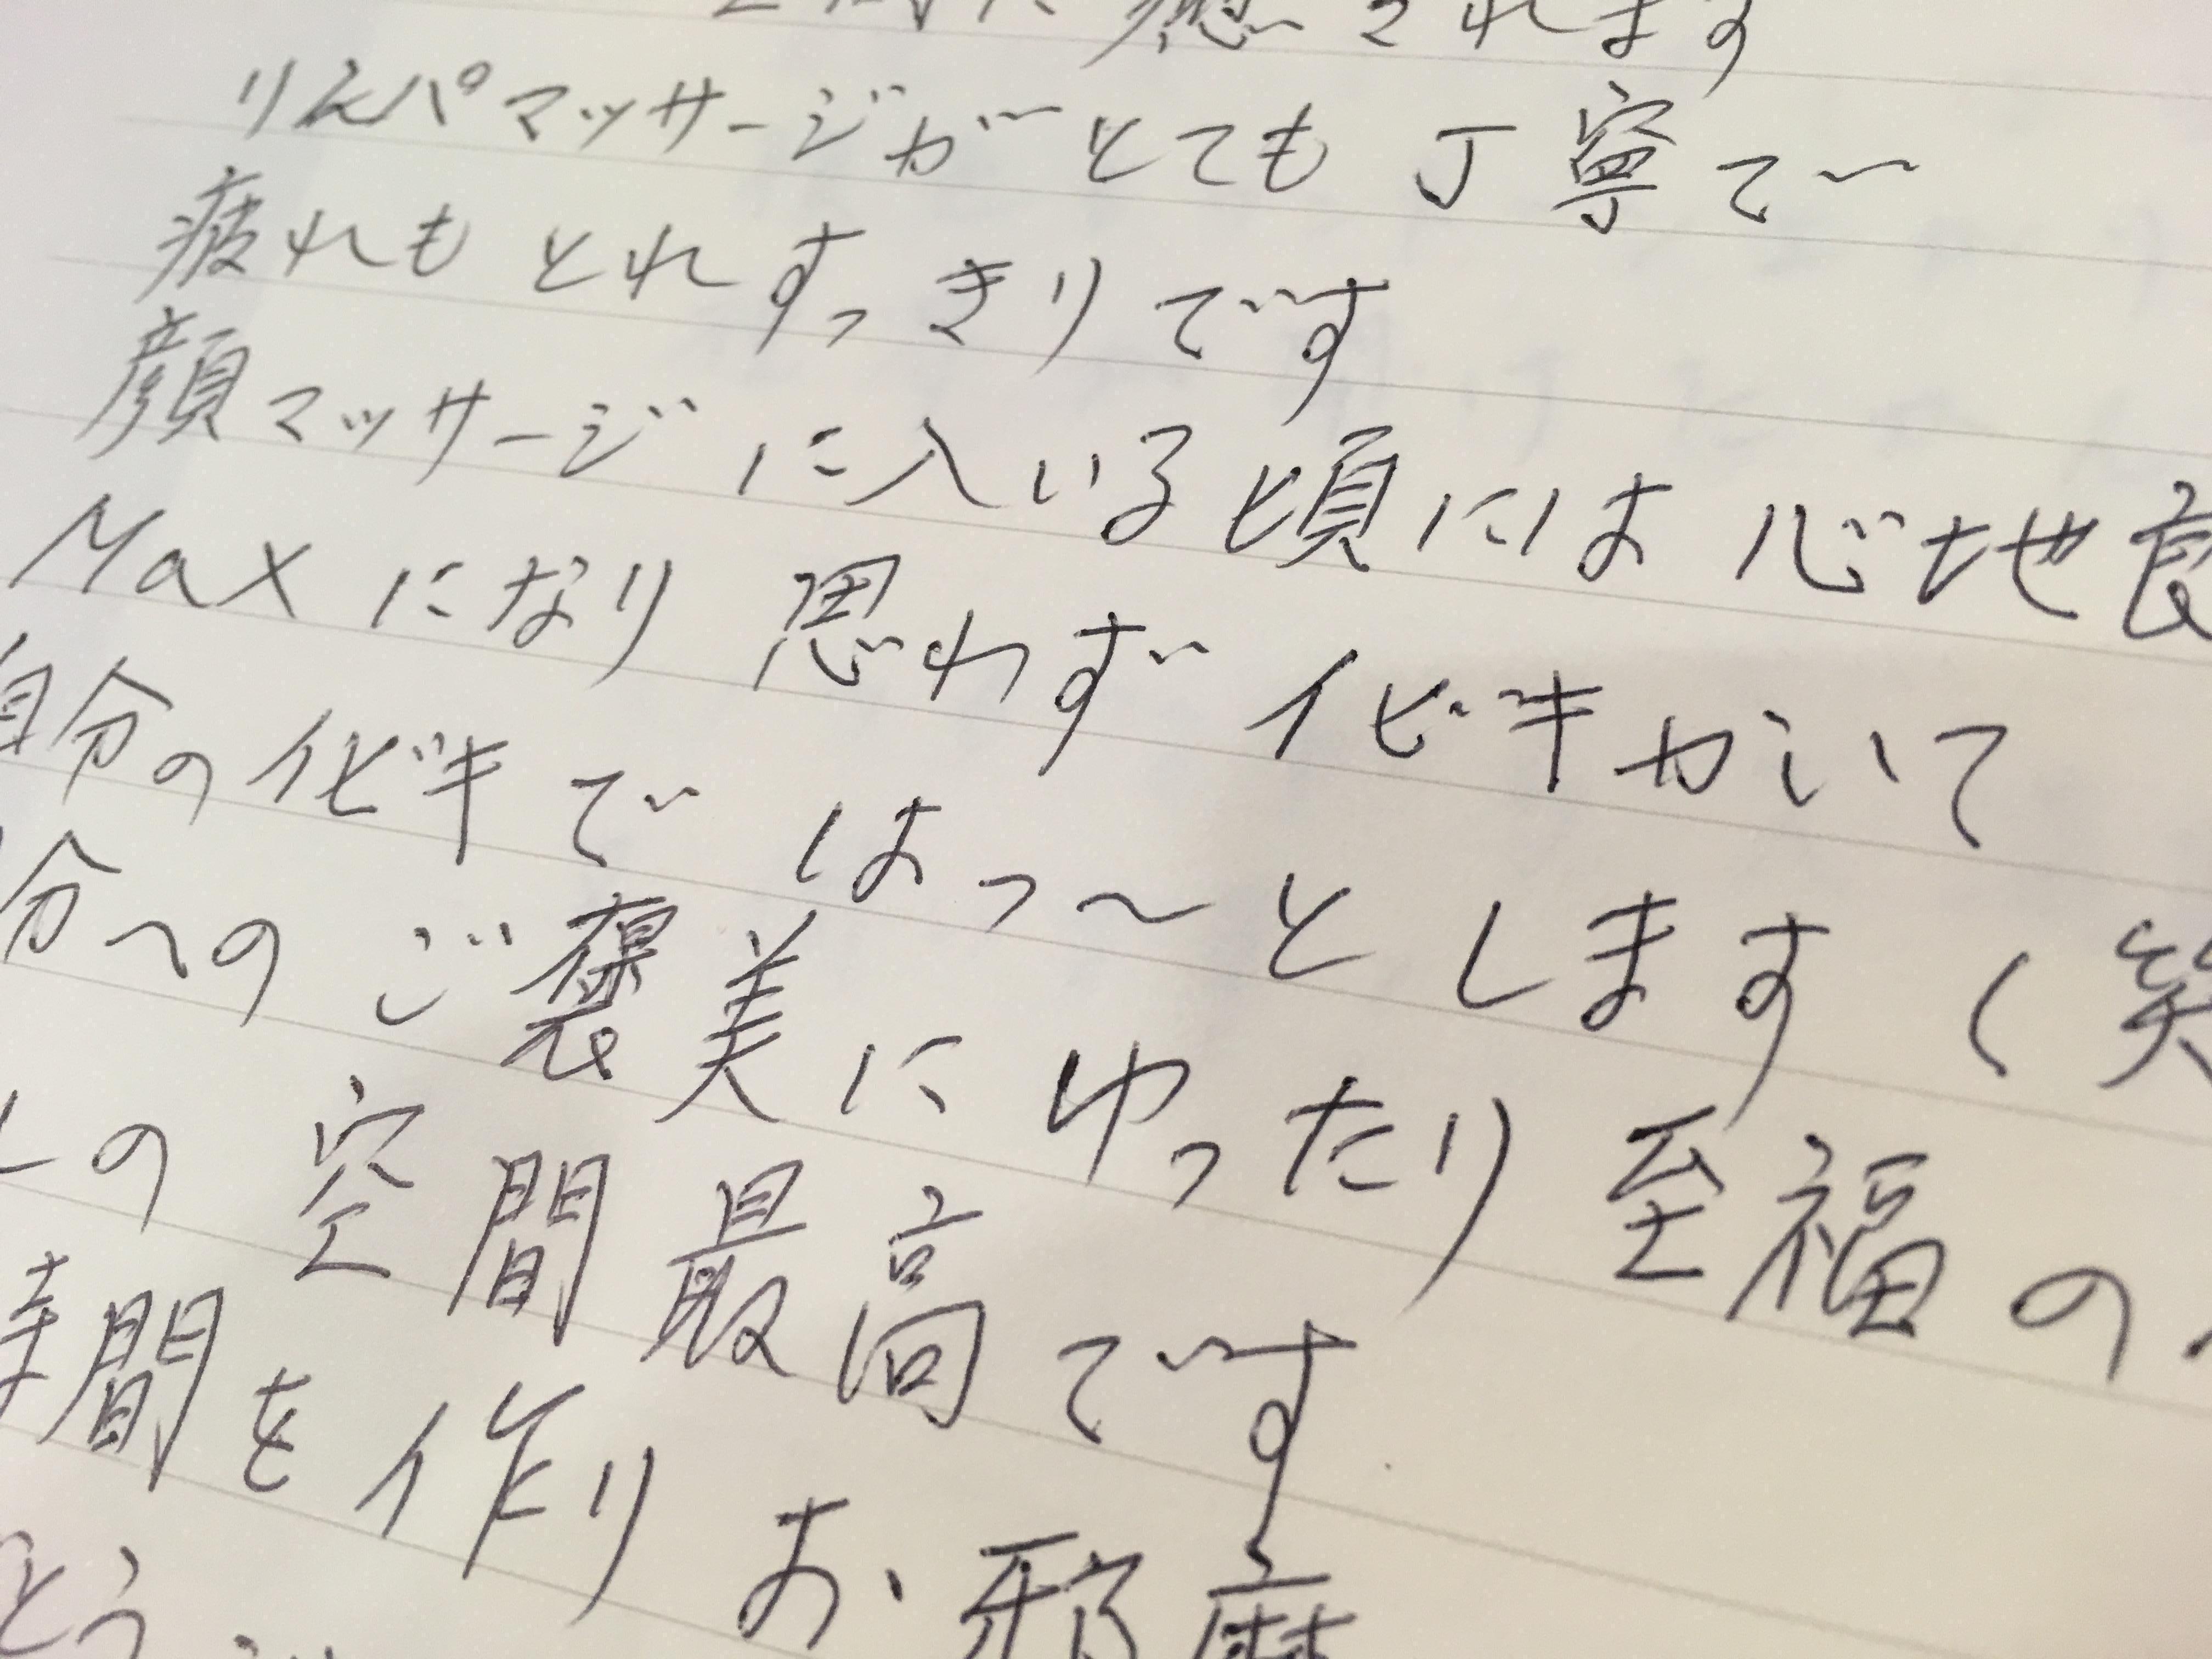 癒されます
りんパマッサージがとても丁寧で
疲れもとれすっきりです
顔マッサージに入いる頃には心地良
Maxになり思わずイビキかいて
自分のイビキではっ〜とします(笑
分へのご褒美にゆったり至福の
の空間最高です
時間を作りお邪魔
とう